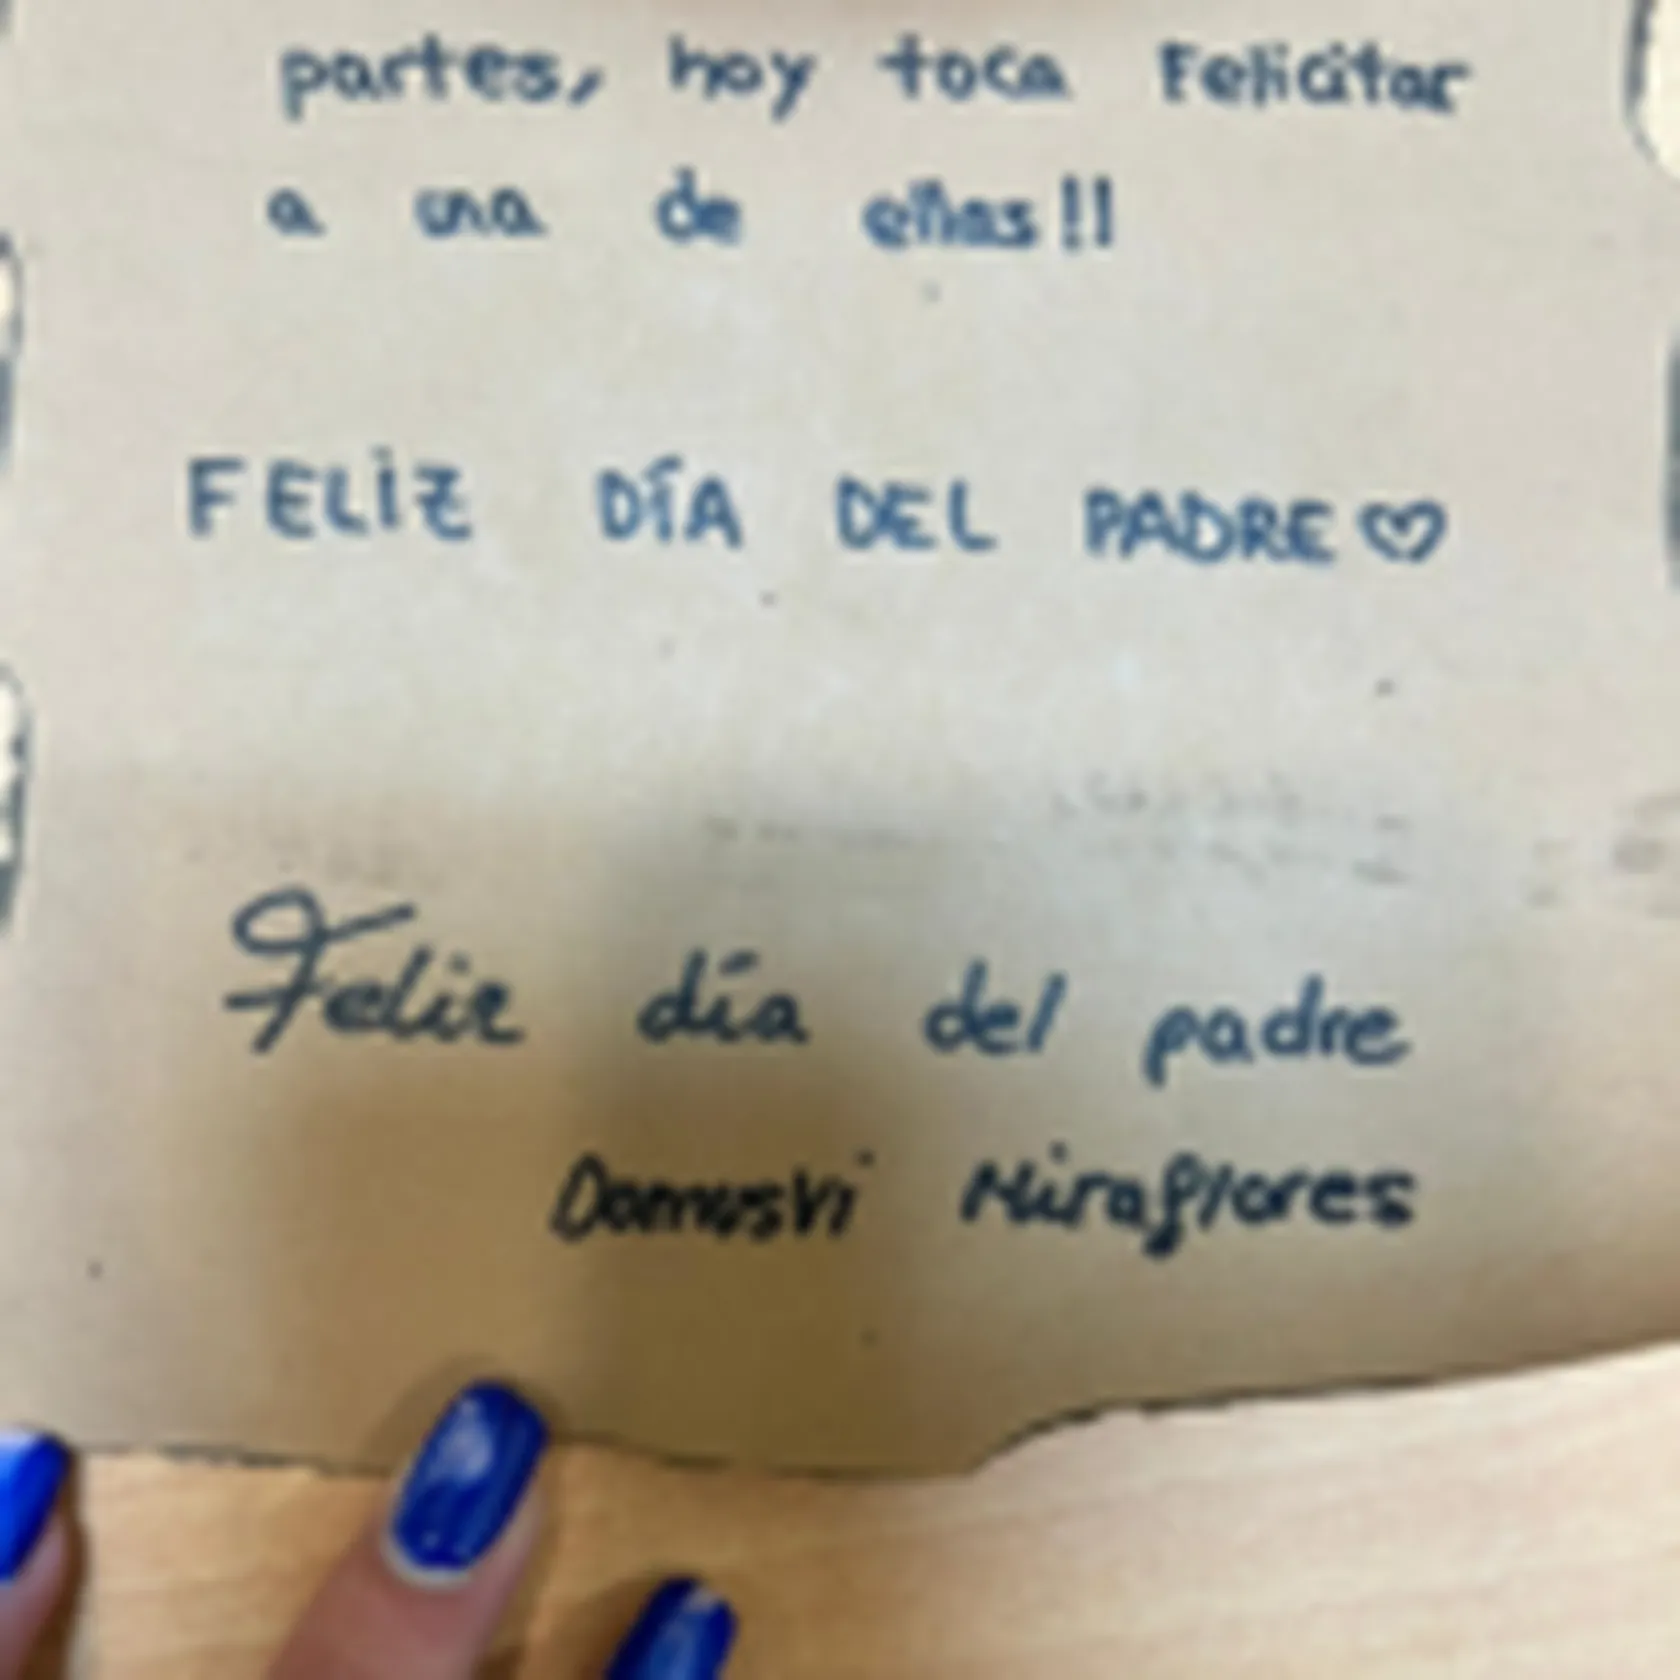 partes, hoy toca Felicitar
a una de ellas!!
FELIZ DÍA DEL PADRE♡
Feliz día del padre
DomusVi Miraflores